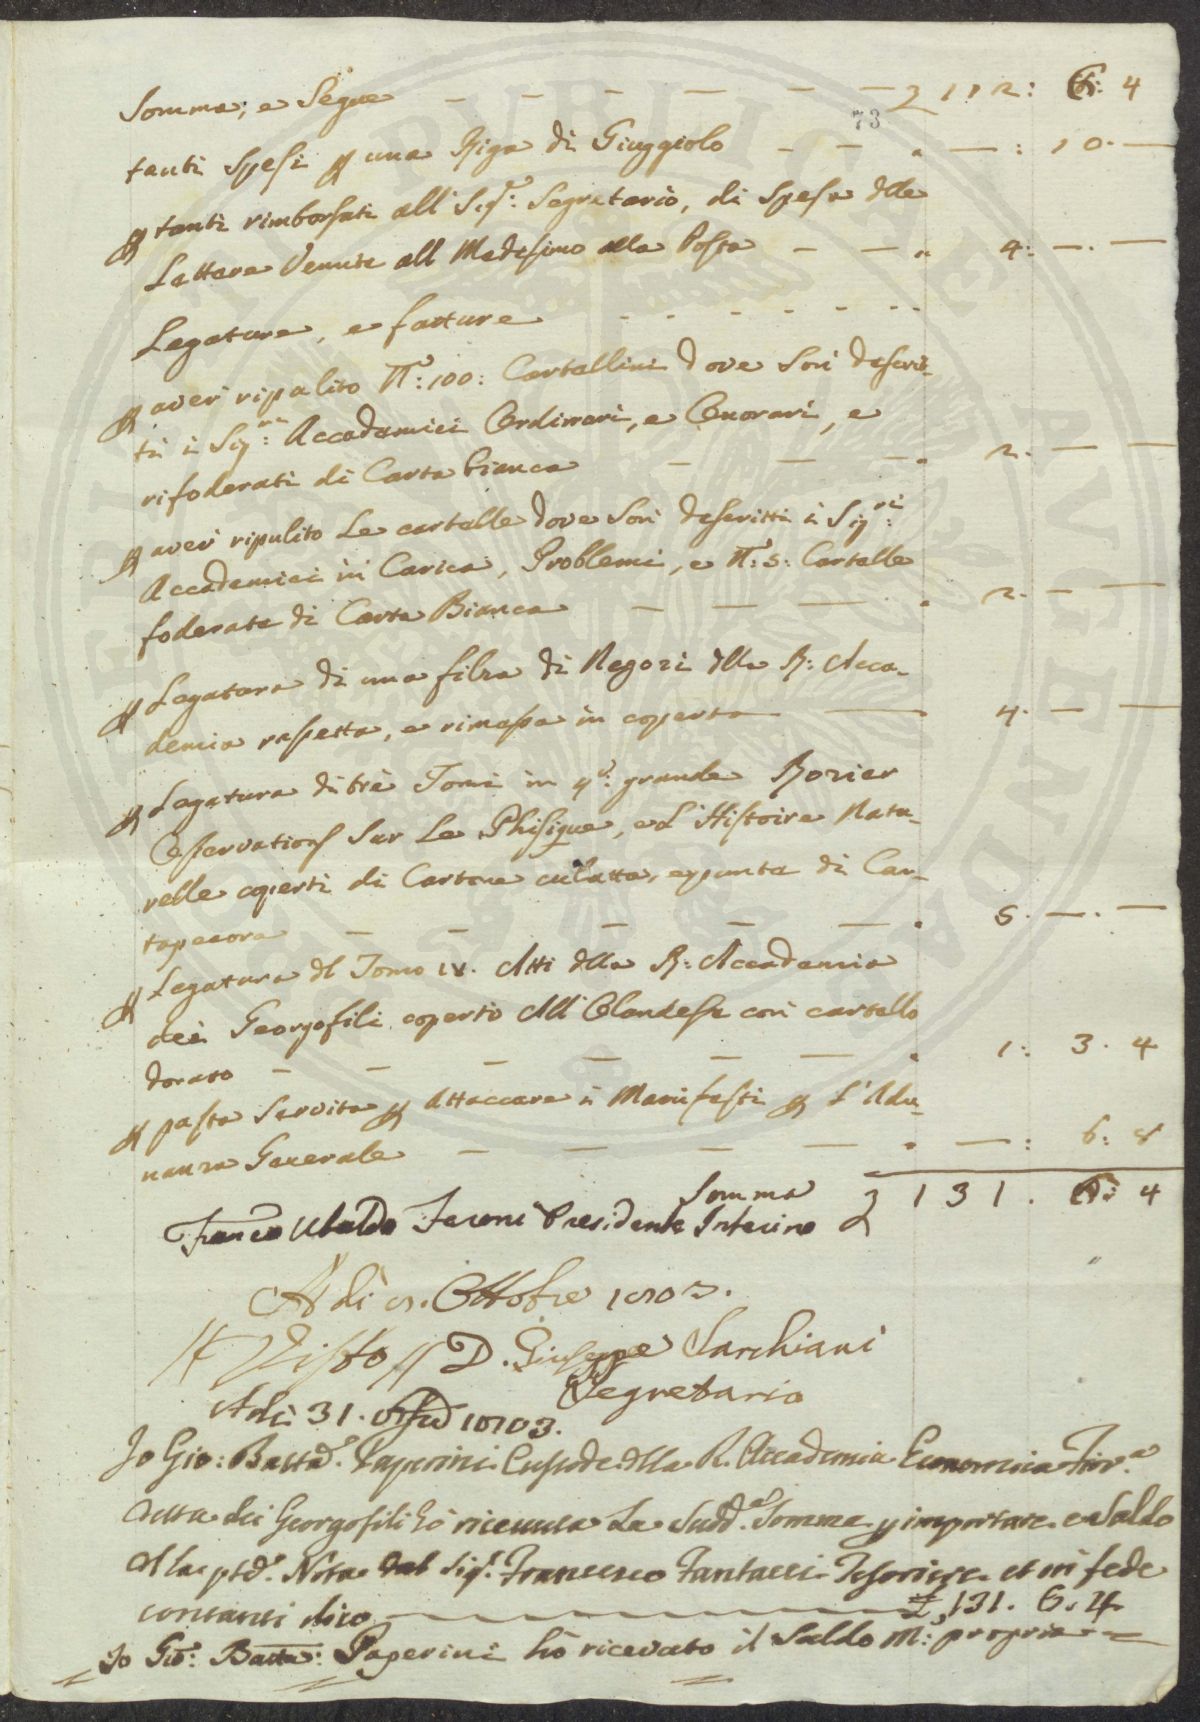 Somma; e Segue — — — — — — £ 112: 6: 4
73
tanti spesi p una Riga di Giuggiolo — — . — : 10. —
p tanti rimborsati all Sig.r: Segretario, di spese dlle
Lettere Venute all Medesimo alla Posta — — „ 4: —. —
Legature, e fatture - - - - - - - -
p aver ripulito N.°: 100: Cartellini dove Son descrit-
ti i Sig.ri: Accademici Ordinari, e Onorari, e
rifoderati di Carta bianca — — — . 2. — —
p aver ripulito Le cartelle dove Son descritti i Sig.ri:
Accademici in Carica, Problemi, e N.°: 5: Cartelle
foderate di Carta Bianca — — — . 2. — —
p Legatura di una filza di Negozi dlla R: Acca-
demia rasetta, e rimessa in coperta — — 4. — —
p Legatura di tre Tomi in 4.°: grande Rozier
Observations Sur Le Phisique, e L'Histoire Natu-
relle coperti di Cartone culatta, e punta di Car-
tapecora — — — — — . 5. —. —
p Legatura dl Tomo IV. Atti dlla R: Accademia
dei Georgofili coperto All Olandese con cartello
dorato — — — — — — . 1: 3. 4
p pasta Servita p Attaccare i Manifesti p L'Adu-
nanza Generale — — — — . — : 6: 8
Somma £ 131. 6: 4
Franco Ubaldo Feroni Presidente Interino
A dì Ottobre 1803.
Visto D. Giuseppe Sarchiani
Segretario
Adi 31. 1803.
Io Gio: Batta. Paperini Custode dlla R. Accademia Economica Fior.a
detta dei Georgofili hò ricevuta La Sudd.a Somma p importare e Saldo
dlla ptd.a Nota dal Sig.r Francesco Fantacci Tesoriere et in fede
contanti dico — £ 131. 6. 4
Io Gio: Batta: Paperini hò ricevuto il Saldo M.° propria